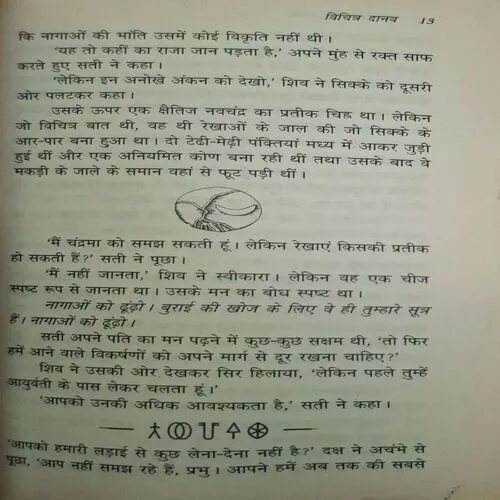 विचित्र दानव 13
कि नागाओं की भांति उसमें कोई विकृति नहीं थी।
'यह तो कहीं का राजा जान पड़ता है,' अपने मुंह से रक्त साफ
करते हुए सती ने कहा।
'लेकिन इन अनोखे अंकन को देखो,' शिव ने सिक्के को दूसरी
ओर पलटकर कहा।
उसके ऊपर एक क्षैतिज नवचंद्र का प्रतीक चिह्न था। लेकिन
जो विचित्र बात थी, वह थी रेखाओं के जाल की जो सिक्के के
आर-पार बना हुआ था। दो टेढ़ी-मेढ़ी पंक्तियां मध्य में आकर जुड़ी
हुई थीं और एक अनियमित कोण बना रही थीं तथा उसके बाद वे
मकड़ी के जाले के समान वहां से फूट पड़ी थीं।
'मैं चंद्रमा को समझ सकती हूं। लेकिन रेखाएं किसकी प्रतीक
हो सकती हैं?' सती ने पूछा।
'मैं नहीं जानता,' शिव ने स्वीकारा। लेकिन वह एक चीज
स्पष्ट रूप से जानता था। उसके मन का बोध स्पष्ट था।
नागाओं को ढूंढ़ो। बुराई की खोज के लिए वे ही तुम्हारे सूत्र
हैं। नागाओं को ढूंढ़ो।
सती अपने पति का मन पढ़ने में कुछ-कुछ सक्षम थी, 'तो फिर
हमें आने वाले विकर्षणों को अपने मार्ग से दूर रखना चाहिए?'
शिव ने उसकी ओर देखकर सिर हिलाया, 'लेकिन पहले तुम्हें
आयुर्वती के पास लेकर चलता हूं।'
'आपको उनकी अधिक आवश्यकता है,' सती ने कहा।
'आपको हमारी लड़ाई से कुछ लेना-देना नहीं है?' दक्ष ने अचंभे से
पूछा, 'आप नहीं समझ रहे हैं, प्रभु। आपने हमें अब तक की सबसे